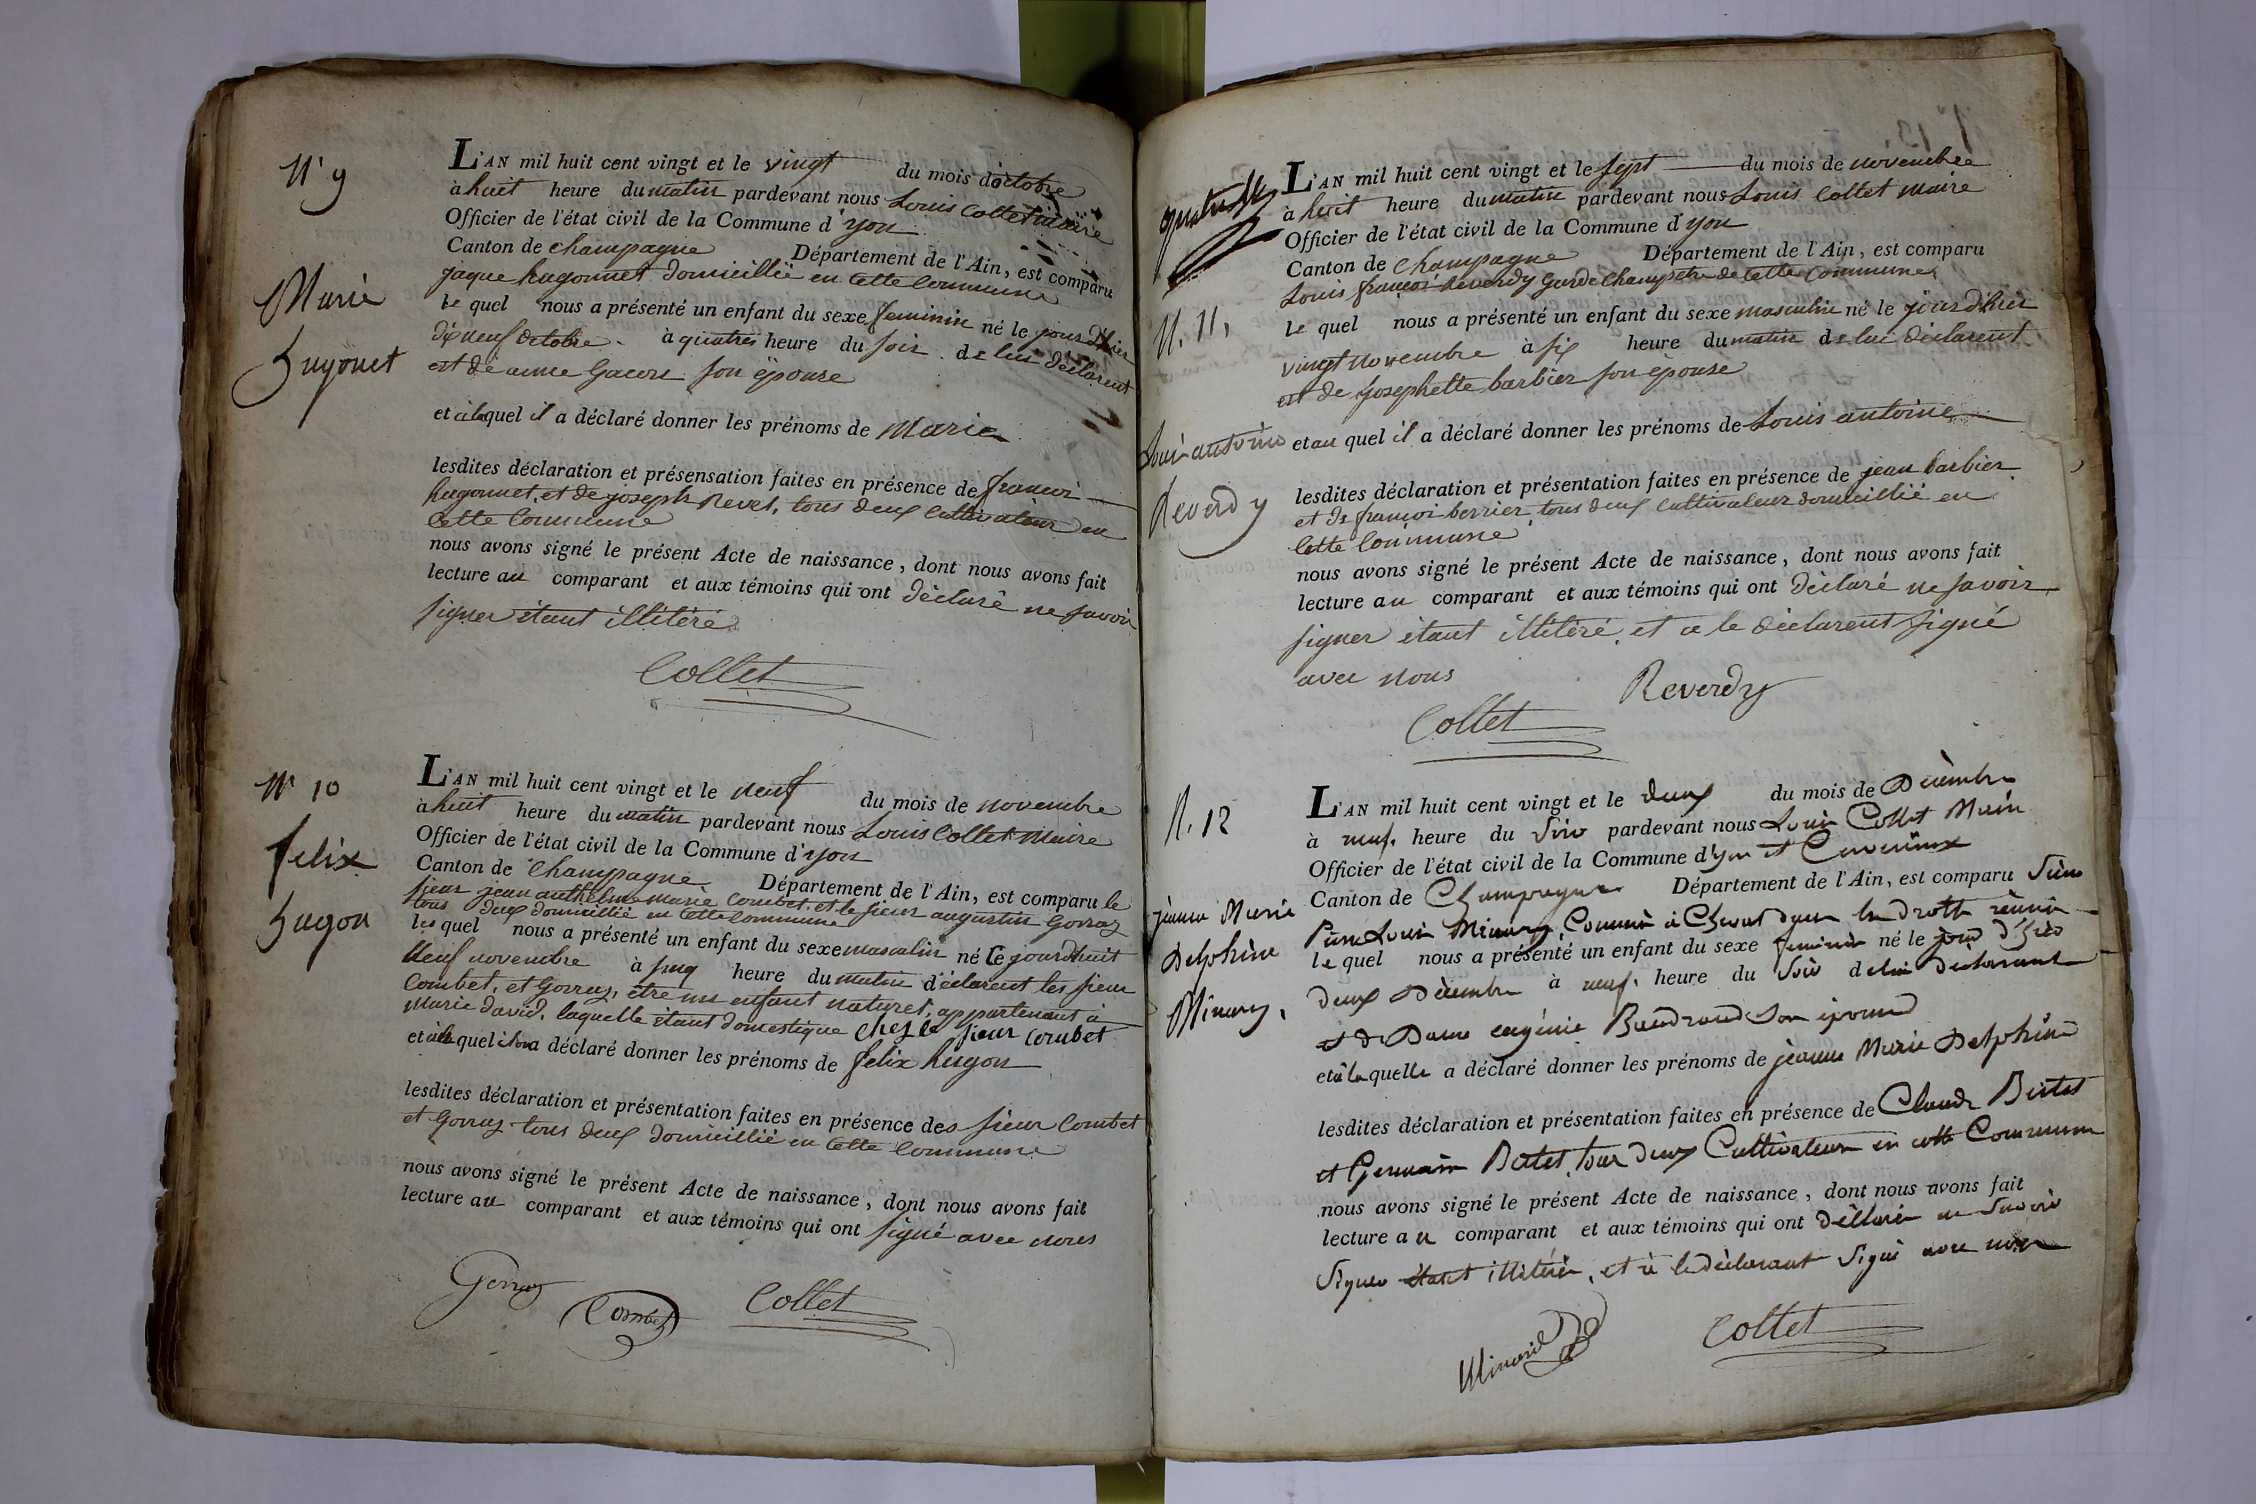 N° 9
Marie
hugonet
L'AN mil huit cent vingt et le vingt du mois d'octobre
à huit heure du matin pardevant nous Louis Collet maire
Officier de l'état civil de la Commune d'yon
Canton de champagne Département de l'Ain, est comparu
jaque hugonnet domicillié en cette commune
le quel nous a présenté un enfant du sexe feminin né le jour d'hier
dix neuf octobre à quatres heure du soir de lui déclarent
est de anne Gacon son épouse
et à la quel il a déclaré donner les prénoms de Marie
lesdites déclaration et présensation faites en présence de francoi
hugonnet, et de joseph Revel, tous deux cultivateur en
cette commune
nous avons signé le présent Acte de naissance, dont nous avons fait
lecture au comparant et aux témoins qui ont déclaré ne savoir
signer étant illitéré
Collet
N° 10
felix
hugon
L'AN mil huit cent vingt et le neuf du mois de novembre
à huit heure du matin pardevant nous Louis Collet Maire
Officier de l'état civil de la Commune d'yon
Canton de Champagne Département de l'Ain, est comparu le
sieur jean anthelme marie Combet, et le sieur augustin Gorraz
tous deux domicillié en cette commune
les quel nous a présenté un enfant du sexe masculin né le jourdhuit
Neuf novembre à heure du matin déclarent les sieur
Combet, et Gorraz, être un enfant naturel, appartenant à
marie david, laquelle étant domestique chez le sieur Combet
et quel a déclaré donner les prénoms de felix hugon
lesdites déclaration et présentation faites en présence des sieur Combet
et Gorraz tous deux domicillié en cette commune
nous avons signé le présent Acte de naissance, dont nous avons fait
lecture au comparant et aux témoins qui ont signé avec nous
Gorraz Combet Collet
N. 11,
Loui antoine
Reverdy
L'AN mil huit cent vingt et le sept du mois de novembre
à huit heure du matin pardevant nous Louis Collet maire
Officier de l'état civil de la Commune d'yon
Canton de Champagne Département de l'Ain, est comparu
Louis françoi Reverdy Garde Champetre de cette commune
le quel nous a présenté un enfant du sexe masculin né le jour d'hier
vingt novembre à six heure du matin de lui déclarent
est de josephette barbier son épouse
et au quel il a déclaré donner les prénoms de Louis antoine
lesdites déclaration et présentation faites en présence de jean barbier
et de françoi berrier tous deux cultivateur domicillié en
cette commune
nous avons signé le présent Acte de naissance, dont nous avons fait
lecture au comparant et aux témoins qui ont déclaré ne savoir
signer étant illitéré et a le déclarent signé
avec nous
Reverdy
Collet
N. 12
jeanne Marie
Delphine
Minary,
L'AN mil huit cent vingt et le deux du mois de Décembre
à neuf heure du soir pardevant nous Louis Collet Maire
Officier de l'état civil de la Commune d'yon et
Canton de Champagne Département de l'Ain, est comparu Sieur
Pierre Louis Minary, Commis à Cheval dans les droits réunis
le quel nous a présenté un enfant du sexe feminin né le jour d'hier
deux Décembre à neuf heure du soir de lui déclarant
et de Dame eugénie Baudrand son épouse
et à la quelle a déclaré donner les prénoms de jeanne Marie Delphine
lesdites déclaration et présentation faites en présence de Claude Bertet
et Germain Bertet tous deux Cultivateur en cette Commune
nous avons signé le présent Acte de naissance, dont nous avons fait
lecture au comparant et aux témoins qui ont déclaré ne savoir
Signer étant illitéré, et à le déclarant signé avec nous
Minary
Collet